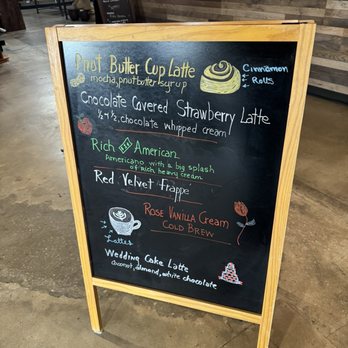 Pnut Butter Cup Latte
mocha, pnut butter syrup
Cinnamon
Rolls
Chocolate Covered Strawberry Latte
½ & ½, chocolate whipped cream
Rich American
Americano with a big splash
of rich heavy cream
Red Velvet Frappé
Rose Vanilla Cream
Cold Brew
Lattes
Wedding Cake Latte
Coconut, almond, white chocolate